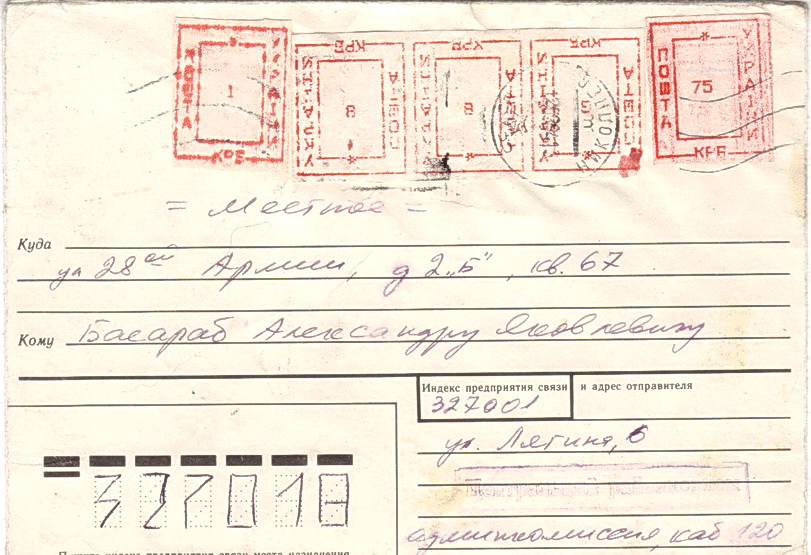 УКРАЇНА ПОШТА 1 КРБ
КРБ ПОШТА 8
КРБ ПОШТА 8
КРБ ПОШТА
УКРАЇНИ ПОШТА 75 КРБ
= Местное =
Куда
ул 28ой Армии, д 2„Б", кв. 67
Кому Басараб Александру Яковлевичу
Индекс предприятия связи и адрес отправителя
327001
ул. Лягина, 6
327018
админкомиссия, каб 120
Пишите индекс предприятия связи места назначения